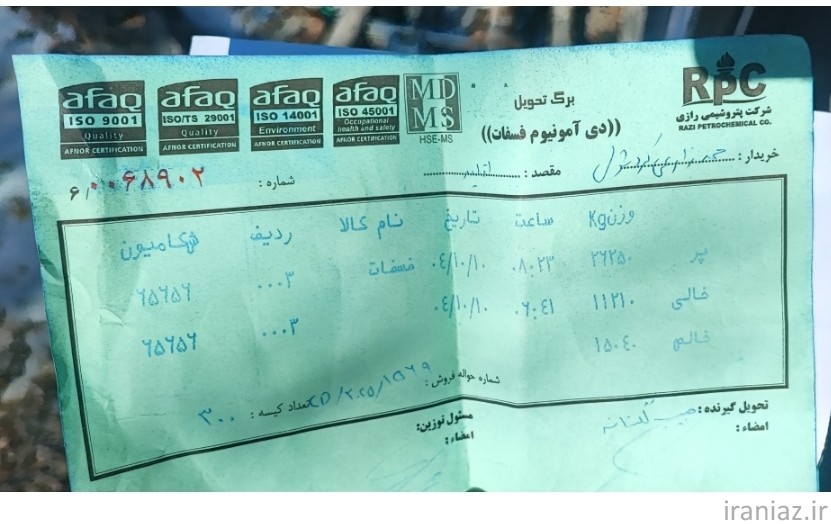 afaq afaq afaq afaq MD MS RPC
ISO 9001 ISO/TS 29001 ISO 14001 ISO 45001
Quality Quality Environment Occupational health and safety
AFNOR CERTIFICATION AFNOR CERTIFICATION AFNOR CERTIFICATION AFNOR CERTIFICATION
HSE-MS
شرکت پتروشیمی رازی
RAZI PETROCHEMICAL CO.
برگ تحویل
((دی آمونیوم فسفات))
خریدار :
مقصد :
شماره : ۶/۰۰۶۸۹۰۲
وزن Kg ساعت تاریخ نام کالا ردیف ش کامیون
پر ۲۶۲۵۰ ۰۸:۲۳ ۰۴/۱۰/۱۰ فسفات ۰۰۰۳ ۶۵۶۵۶
خالی ۱۱۲۱۰ ۰۶:۴۱ ۰۴/۱۰/۱۰ ۰۰۰۳ ۶۵۶۵۶
خالص ۱۵۰۴۰
شماره حواله فروش :
تعداد کیسه : ۳۰۰
تحویل گیرنده :
امضاء :
مسئول توزین:
امضاء :
iraniaz.ir